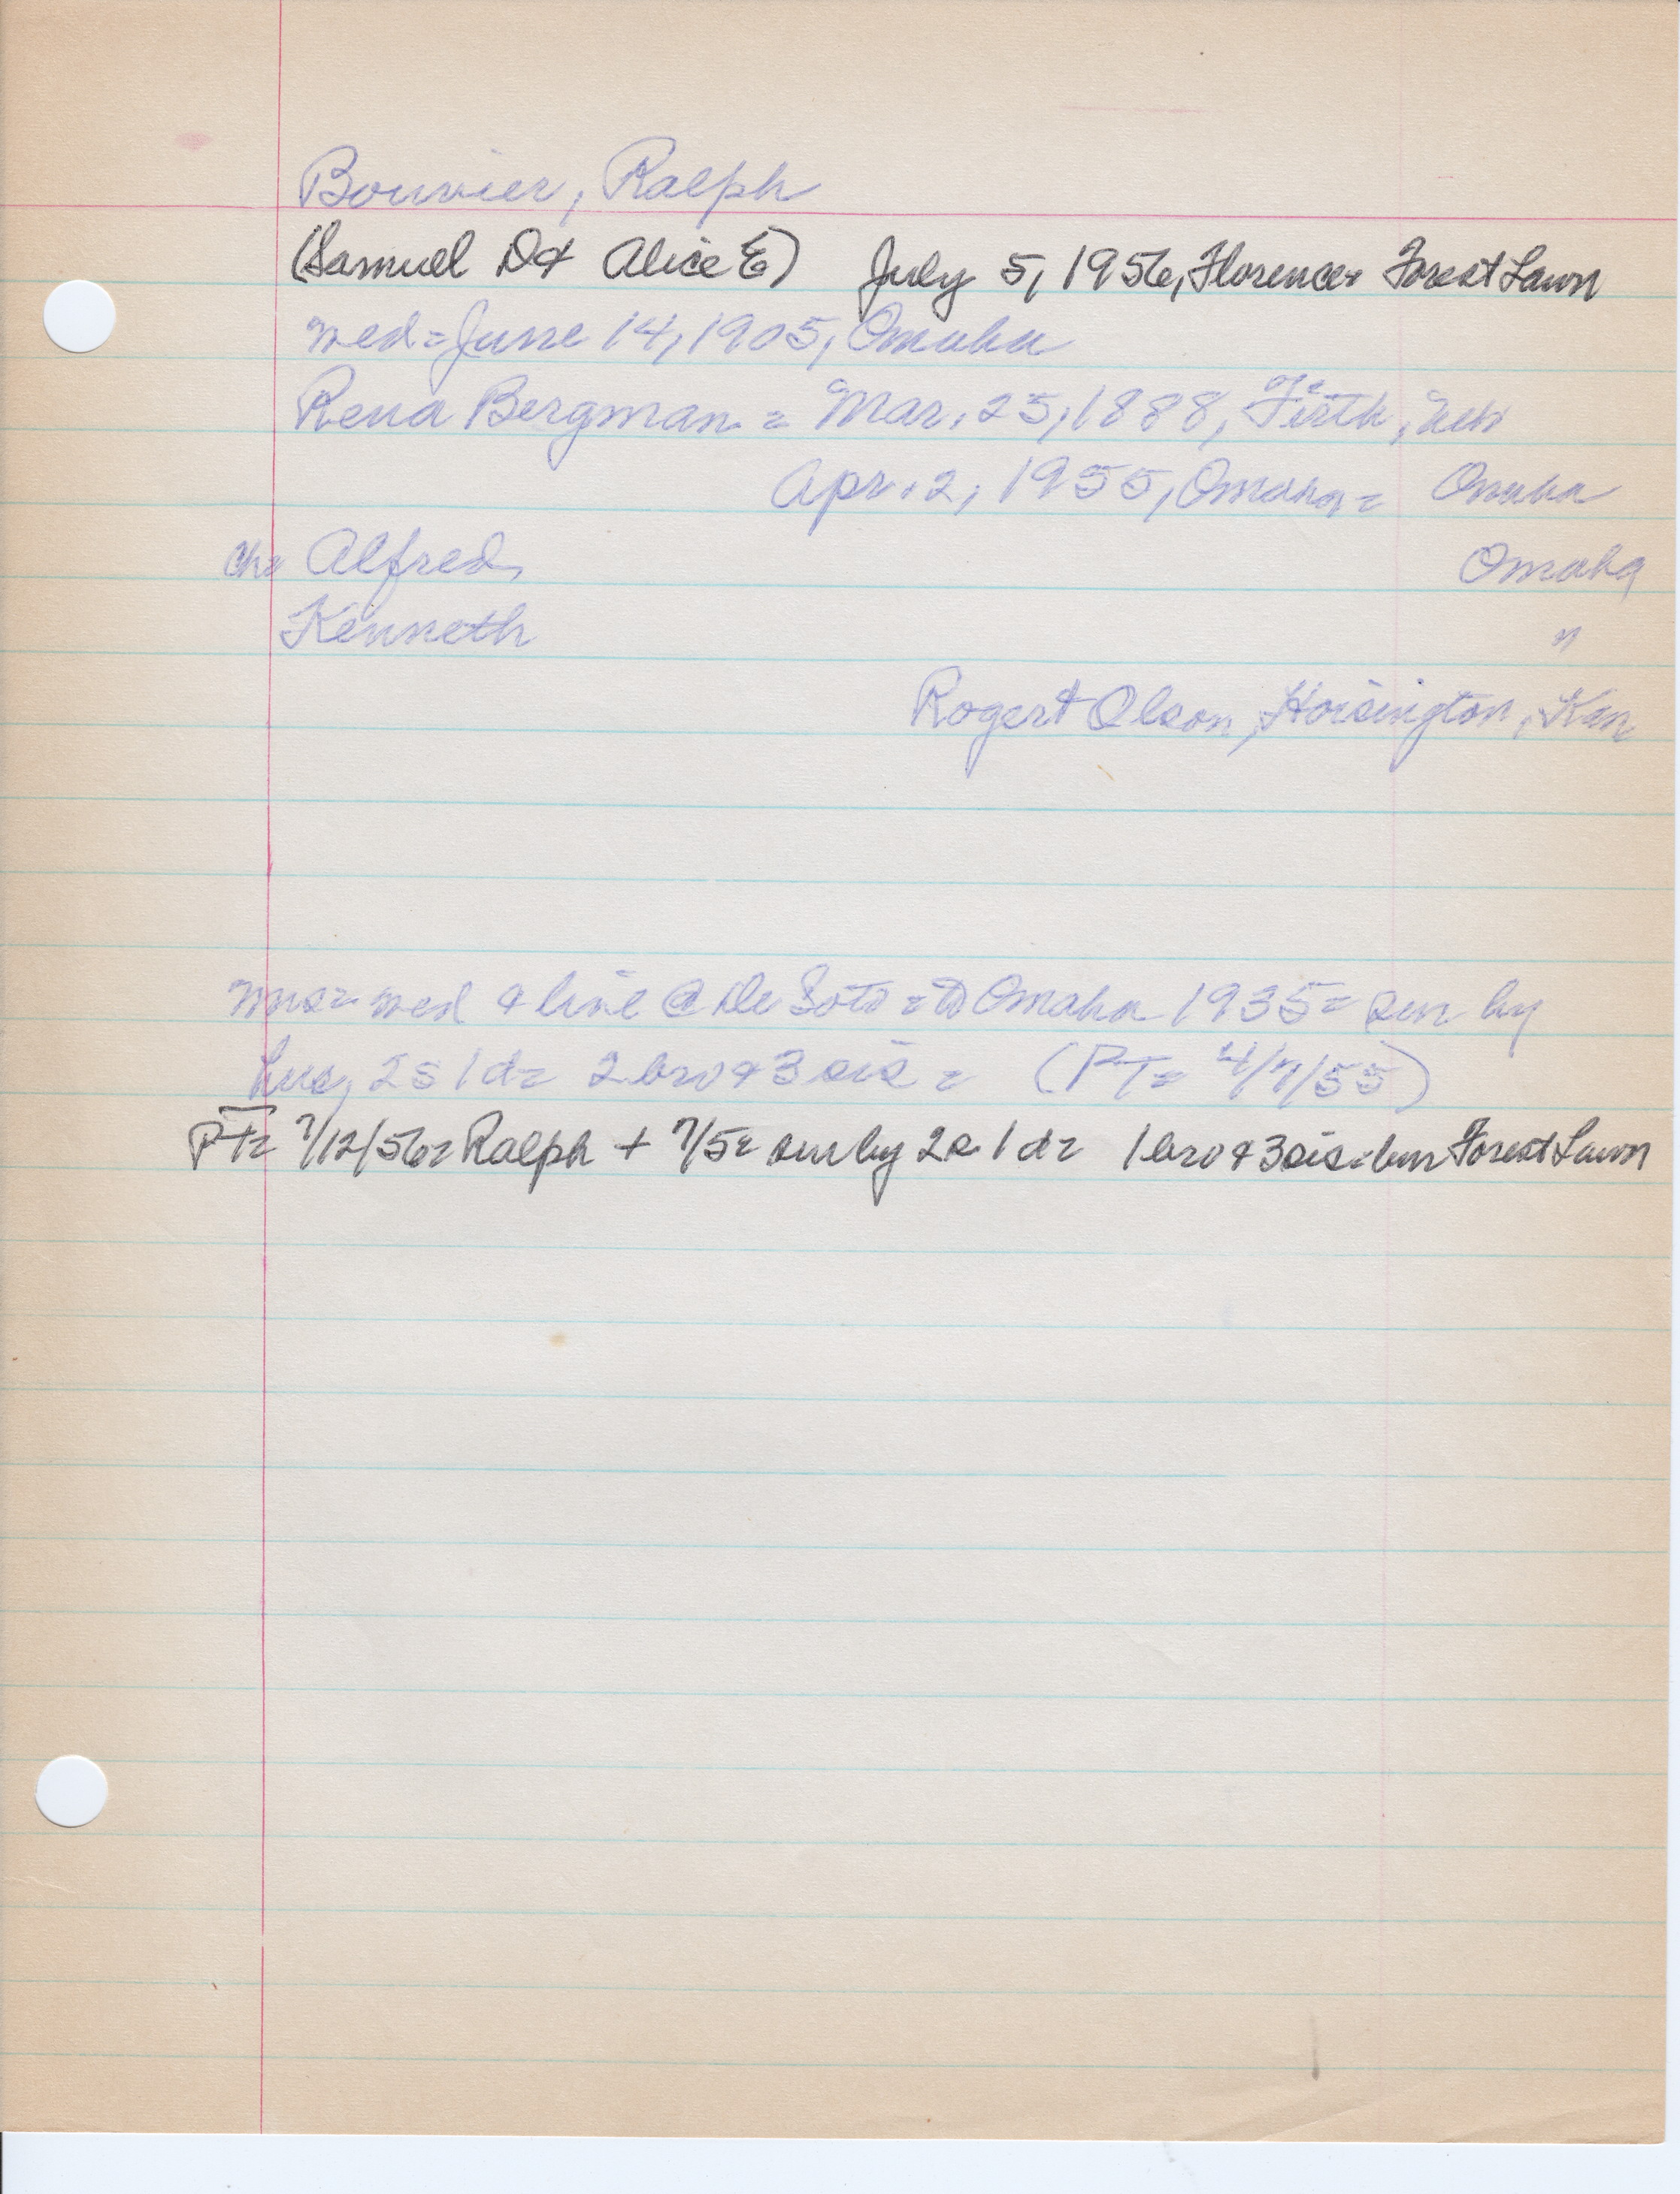 Bouvier, Ralph
(Samuel D & Alice E) July 5, 1956, Florence = Forest Lawn
wed = June 14, 1905, Omaha
Rena Bergman = Mar. 25, 1888, Firth, Neb
Apr. 2, 1955, Omaha = Omaha
ch = Alfred, Omaha
Kenneth "
Rogert Olson, Hoisington, Kan
Mrs = wed & live @ De Soto = to Omaha 1935 = sur by
hus, 2s 1d = 2 bro & 3 sis = (PT = 4/7/55)
PT = 7/12/56 = Ralph + 7/5 = sur by 2s 1d = 1 bro & 3 sis = bur Forest Lawn